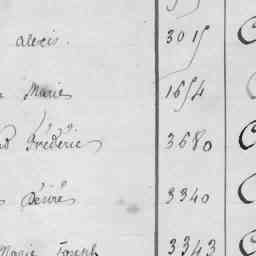 alexis. 3015
Marie 1654
Fréderic 3680
Désiré 3340
Marie Joseph 3343